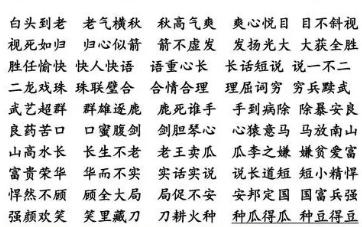 白头到老 老气横秋 秋高气爽 爽心悦目 目不斜视
视死如归 归心似箭 箭不虚发 发扬光大 大获全胜
胜任愉快 快人快语 语重心长 长话短说 说一不二
二龙戏珠 珠联璧合 合情合理 理屈词穷 穷兵黩武
武艺超群 群雄逐鹿 鹿死谁手 手到病除 除暴安良
良药苦口 口蜜腹剑 剑胆琴心 心猿意马 马放南山
山高水长 长生不老 老王卖瓜 瓜李之嫌 嫌贫爱富
富贵荣华 华而不实 实话实说 说长道短 短小精悍
悍然不顾 顾全大局 局促不安 安邦定国 国富兵强
强颜欢笑 笑里藏刀 刀耕火种 种瓜得瓜 种豆得豆